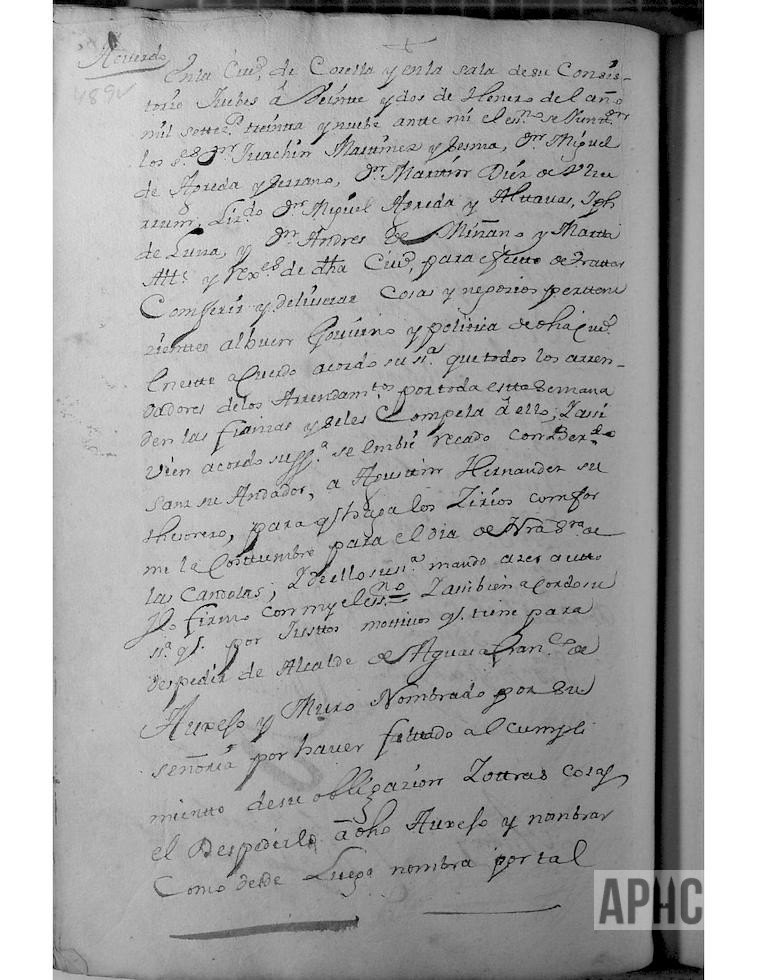 Acuerdo
489v
En la Ciud. de Corella y en la sala de su Consis-
torio Juebes a Veinte y dos de Henero del año
mil sette. treinta y nuebe ante mi el es.no se Juntt.
los s.es Dn. Juachin Martinez y Lesma, Dn. Miguel
de Agreda y Serrano, Dn. Martin Diez de
Liz.do Dn. Miguel Agreda y Joph
de Luna, y Dn. Andres de Miñano y Matta
Allt.s y Rex.es de dha Ciud. para efectto de trattar
Comfferir y deliverar cosas y negozios perttene
zienttes al buen Govierno y politica de dha Ciud.
En estte aCuerdo acordo su s.a que todos los arren-
dadores de los Arrendam.tos por toda estta Semana
den las fianzas y se les Compela a ello; Zassi
vien acordo su ss.a se embie recado con
su Andador, a Agustin Hernandez su
thesorero, para q. haga los Zirios comfor
me la Costtumbre para el dia de Nra Sra. de
las Candelas; Z de ello su s.a mando azer autto
Lo firmo con my el es.no Zassibien aCordo su
s.a q. por Justtos mottivos q. tiene para
despedir de Alcalde de Aguas a Fran.co de
Aurefo y Muro Nombrado por Su
señoria por haver faltado al cumpli
miento de su obligazion Zottras cosas
el Despedirlo a dho Aurefo y nombrar
Como desde Luego nombra por tal
APHC